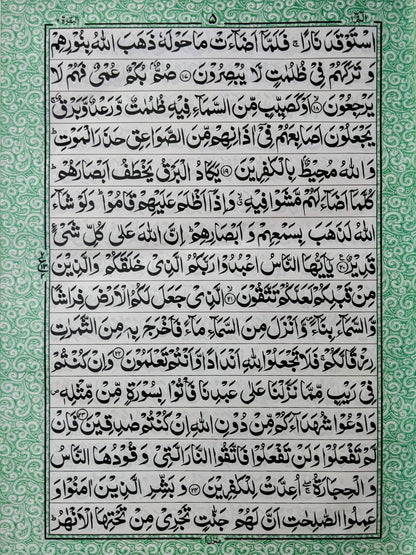 الٓمّٓ ۱ ۵ البقرة ۲
اسْتَوْقَدَ نَارًا ۚ فَلَمَّاۤ اَضَآءَتْ مَا حَوْلَهٗ ذَهَبَ اللّٰهُ بِنُوْرِهِمْ
وَ تَرَكَهُمْ فِیْ ظُلُمٰتٍ لَّا یُبْصِرُوْنَ ﴿۱۷﴾ صُمٌّۢ بُكْمٌ عُمْیٌ فَهُمْ لَا
یَرْجِعُوْنَ ﴿۱۸﴾ اَوْ كَصَیِّبٍ مِّنَ السَّمَآءِ فِیْهِ ظُلُمٰتٌ وَّ رَعْدٌ وَّ بَرْقٌ ۚ
یَجْعَلُوْنَ اَصَابِعَهُمْ فِیْۤ اٰذَانِهِمْ مِّنَ الصَّوَاعِقِ حَذَرَ الْمَوْتِ ؕ
وَ اللّٰهُ مُحِیْطٌۢ بِالْكٰفِرِیْنَ ﴿۱۹﴾ یَكَادُ الْبَرْقُ یَخْطَفُ اَبْصَارَهُمْ ؕ
كُلَّمَاۤ اَضَآءَ لَهُمْ مَّشَوْا فِیْهِ ۙ وَ اِذَاۤ اَظْلَمَ عَلَیْهِمْ قَامُوْا ؕ وَ لَوْ شَآءَ
اللّٰهُ لَذَهَبَ بِسَمْعِهِمْ وَ اَبْصَارِهِمْ ؕ اِنَّ اللّٰهَ عَلٰی كُلِّ شَیْءٍ
قَدِیْرٌ ﴿۲۰﴾ یٰۤاَیُّهَا النَّاسُ اعْبُدُوْا رَبَّكُمُ الَّذِیْ خَلَقَكُمْ وَ الَّذِیْنَ
مِنْ قَبْلِكُمْ لَعَلَّكُمْ تَتَّقُوْنَ ﴿۲۱﴾ الَّذِیْ جَعَلَ لَكُمُ الْاَرْضَ فِرَاشًا
وَّ السَّمَآءَ بِنَآءً ۪ وَّ اَنْزَلَ مِنَ السَّمَآءِ مَآءً فَاَخْرَجَ بِهٖ مِنَ الثَّمَرٰتِ
رِزْقًا لَّكُمْ ۚ فَلَا تَجْعَلُوْا لِلّٰهِ اَنْدَادًا وَّ اَنْتُمْ تَعْلَمُوْنَ ﴿۲۲﴾ وَ اِنْ كُنْتُمْ
فِیْ رَیْبٍ مِّمَّا نَزَّلْنَا عَلٰی عَبْدِنَا فَاْتُوْا بِسُوْرَةٍ مِّنْ مِّثْلِهٖ ۪
وَ ادْعُوْا شُهَدَآءَكُمْ مِّنْ دُوْنِ اللّٰهِ اِنْ كُنْتُمْ صٰدِقِیْنَ ﴿۲۳﴾ فَاِنْ
لَّمْ تَفْعَلُوْا وَ لَنْ تَفْعَلُوْا فَاتَّقُوا النَّارَ الَّتِیْ وَ قُوْدُهَا النَّاسُ
وَ الْحِجَارَةُ ۖۚ اُعِدَّتْ لِلْكٰفِرِیْنَ ﴿۲۴﴾ وَ بَشِّرِ الَّذِیْنَ اٰمَنُوْا وَ
عَمِلُوا الصّٰلِحٰتِ اَنَّ لَهُمْ جَنّٰتٍ تَجْرِیْ مِنْ تَحْتِهَا الْاَنْهٰرُ ؕ